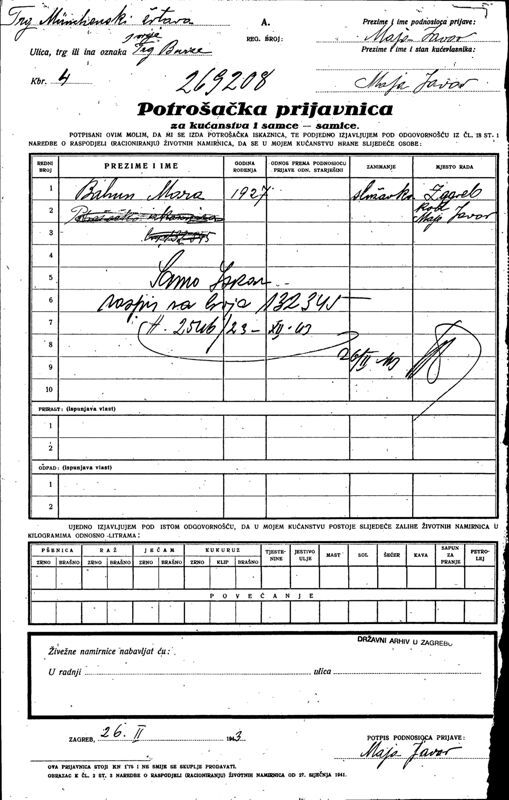 Trg Münchenski žrtava
A.
REG. BROJ:
Prezime i ime podnosioca prijave:
Maja Javor
Prezime i ime i stan kućevlasnika:
Maja Javor
Ulica, trg ili ina oznaka Trg Burze
Kbr. 4
269208
Potrošačka prijavnica
za kućanstva i samce — samice.
POTPISANI OVIM MOLIM, DA MI SE IZDA POTROŠAČKA ISKAZNICA, TE PODJEDNO IZJAVLJUJEM POD ODGOVORNOŠĆU IZ ČL. 18 ST. 1
NAREDBE O RASPODJELI (RACIONIRANJU) ŽIVOTNIH NAMIRNICA, DA SE U MOJEM KUĆANSTVU HRANE SLIJEDEĆE OSOBE:
REDNI BROJ PREZIME I IME GODINA ROĐENJA ODNOS PREMA PODNOSIOCU PRIJAVE ODN. STARJEŠINI ZANIMANJE MJESTO RADA
1 Bahun Mara 1927 Zagreb
2 kod Maje Javor
3
4
5 Samo
6 132345
7 23-XII-43
8 26/II 43
9
10
PRIRAST: (ispunjava vlast)
1
2
ODPAD: (ispunjava vlast)
1
2
UJEDNO IZJAVLJUJEM POD ISTOM ODGOVORNOŠĆU, DA U MOJEM KUĆANSTVU POSTOJE SLIJEDEĆE ZALIHE ŽIVOTNIH NAMIRNICA U
KILOGRAMIMA ODNOSNO LITRAMA:
PŠENICA RAŽ JEČAM KUKURUZ TJESTENINE JESTIVO ULJE MAST SOL ŠEĆER KAVA SAPUN ZA PRANJE PETROLEJ
ZRNO BRAŠNO ZRNO BRAŠNO ZRNO BRAŠNO ZRNO KLIP BRAŠNO
POVEĆANJE
DRŽAVNI ARHIV U ZAGREBU
Živežne namirnice nabavljat ću:
U radnji ulica
ZAGREB, 26. II 1943
POTPIS PODNOSIOCA PRIJAVE:
Maja Javor
OVA PRIJAVNICA STOJI KN 1'75 I NE SMIJE SE SKUPLJE PRODAVATI.
OBRAZAC K ČL. 2 ST. 3 NAREDBE O RASPODJELI (RACIONIRANJU) ŽIVOTNIH NAMIRNICA OD 27. SIJEČNJA 1941.